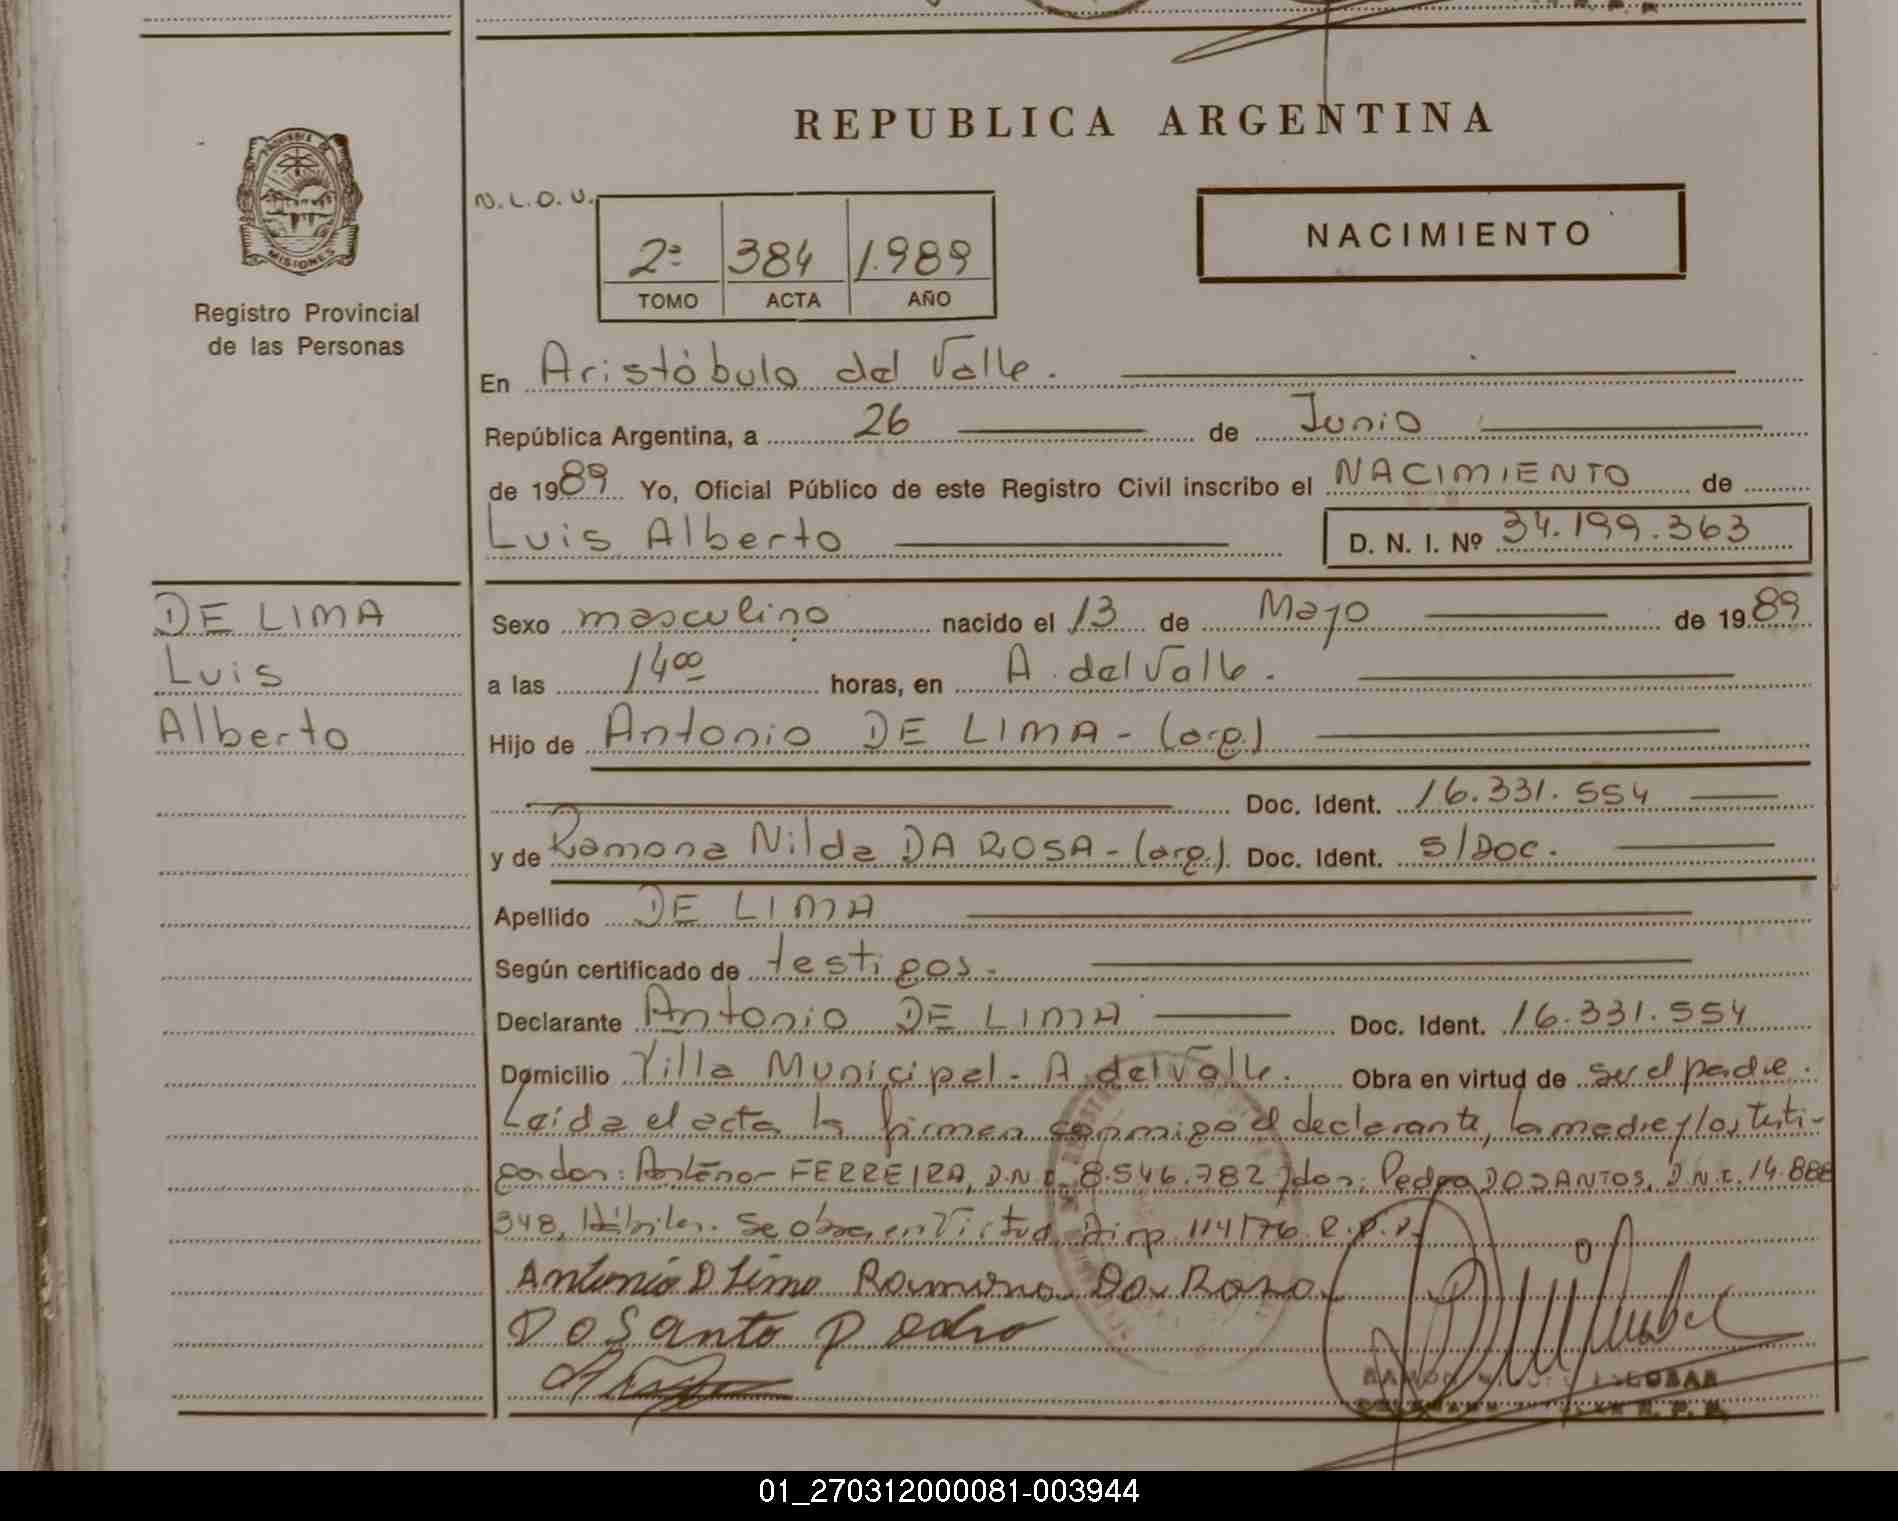 REPUBLICA ARGENTINA
N.L.O.U.
2ª 384 1.989
TOMO ACTA AÑO
NACIMIENTO
MISIONES
Registro Provincial
de las Personas
En Aristóbulo del Valle.
República Argentina, a 26 de Junio
de 1989 Yo, Oficial Público de este Registro Civil inscribo el NACIMIENTO de
Luis Alberto D. N. I. Nº 34.199.363
DE LIMA
Luis
Alberto
Sexo masculino nacido el 13 de Mayo de 1989
a las 14 00 horas, en A. del Valle.
Hijo de Antonio DE LIMA - (arg.)
Doc. Ident. 16.331.554
y de Ramona Nilda DA ROSA - (arg.) Doc. Ident. S/Doc.
Apellido DE LIMA
Según certificado de testigos.
Declarante Antonio DE LIMA Doc. Ident. 16.331.554
Domicilio Villa Municipal - A. del Valle. Obra en virtud de ser el padre.
Leída el acta la firman conmigo el declarante, la madre y los testi-
gos don: Antenor FERREIRA, D.N.I. 8.546.782 y don: Pedro DOSANTOS, D.N.I. 14.888
348, Hábiles. Se obra en Virtud Disp. 114/76. R.P.P.
Antonio D Lima Ramona Da Rosa
DoSanto Pedro
RAMON ESCOBAR
R. P. P.
01_270312000081-003944